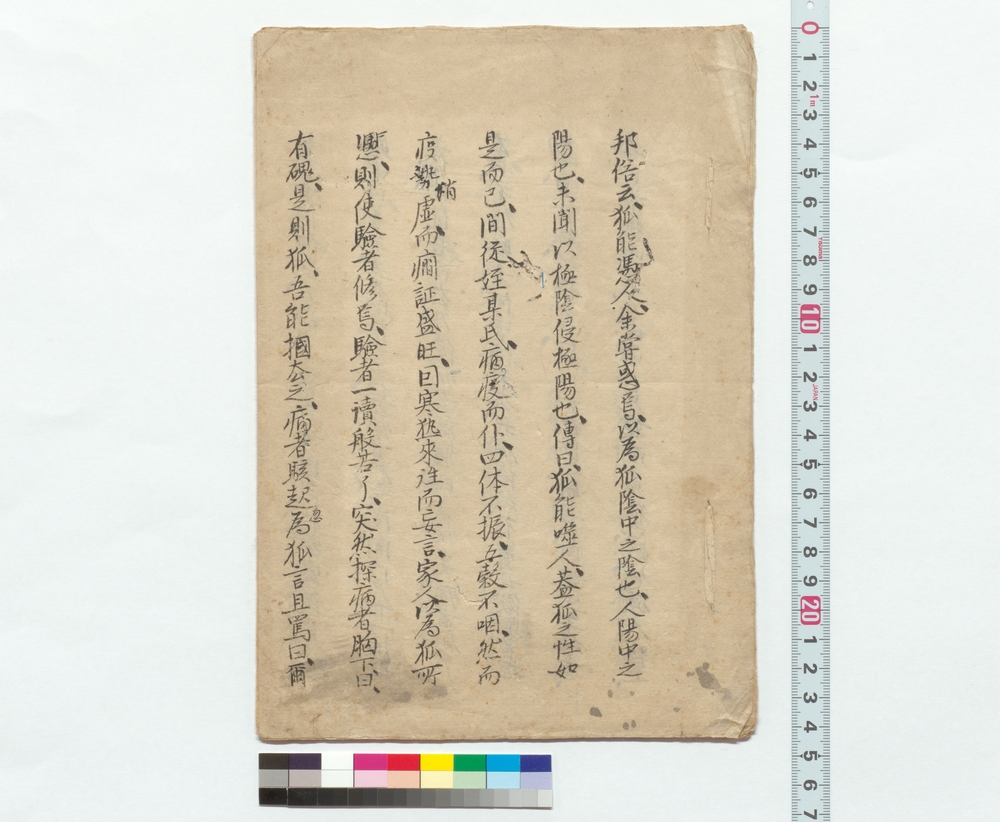 邦俗云、狐能憑人、余嘗惑焉、以為狐陰中之陰也、人陽中之
陽也、未聞以極陰侵極陽也、傳曰、狐能噬人、蓋狐之性如
是而已、間従姪某氏、病疫而仆、四体不振、五穀不咽、然而
疫勢稍虚、而癇証盛旺、因寒熱来往而妄言、家人以為狐所
憑、則使驗者修焉、驗者一讀般若了、突然探病者胸下曰、
有磈、是則狐、吾能摑杰之、病者駭起、忽為狐言且罵曰、爾
0
1
2
1m
3
4
5
6
7
8
9
10
1
2
JAPAN
3
4
5
6
7
8
9
20
1
2
3
4
5
6
7